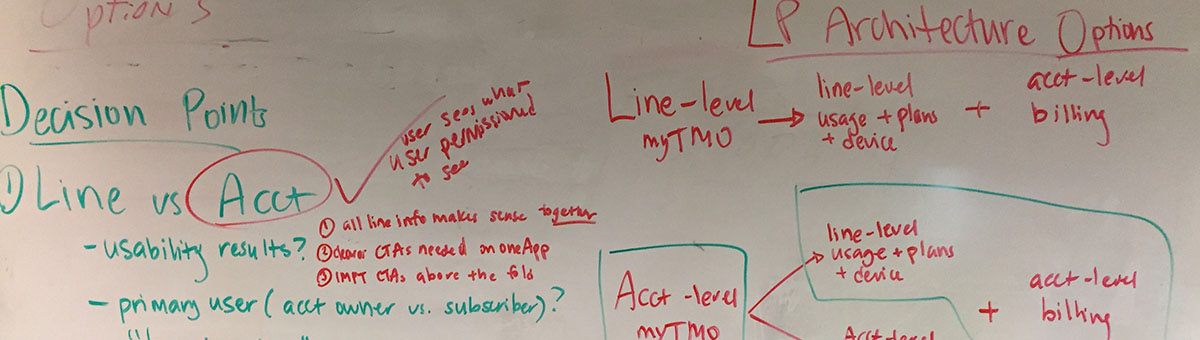 Options
Decision Points
1) Line vs Acct
user sees what
user permissioned
to see
- usability results?
① all line info makes sense together
② clearer CTAs needed on oneApp
③ IMPT CTAs above the fold
- primary user (acct owner vs. subscriber)?
LP Architecture Options
Line-level
myTMO
line-level
usage + plans
+ device
+
acct-level
billing
Acct-level
myTMO
line-level
usage + plans
+ device
Acct-level
+
acct-level
billing